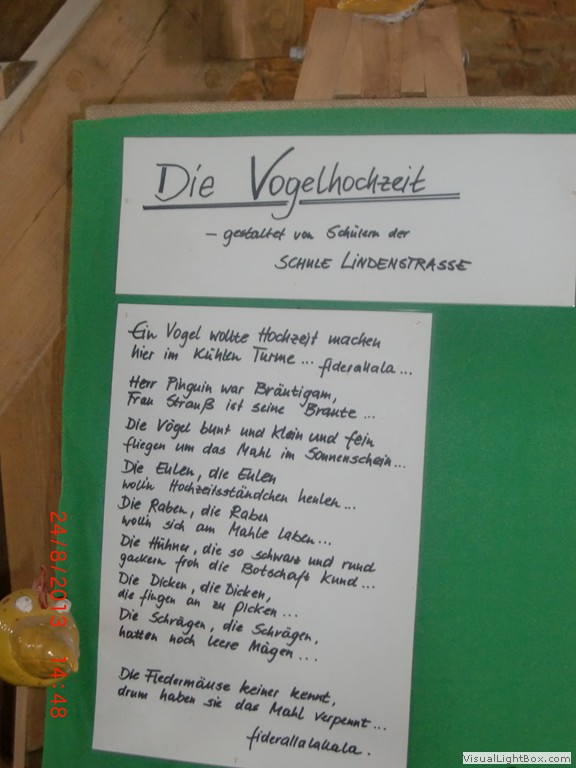 Die Vogelhochzeit
- gestaltet von Schülern der
SCHULE LINDENSTRASSE
Ein Vogel wollte Hochzeit machen
hier im Kühlen Turme ... fiderallala ...
Herr Pinguin war Bräutigam,
Frau Strauß ist seine Braute ...
Die Vögel bunt und Klein und fein
fliegen um das Mahl im Sonnenschein ...
Die Eulen, die Eulen
woll'n Hochzeitsständchen heulen ...
Die Raben, die Raben
woll'n sich am Mahle laben ...
Die Hühner, die so schwarz und rund
gackern froh die Botschaft Kund ...
Die Dicken, die Dicken,
die fingen an zu picken ...
Die Schrägen, die Schrägen,
hatten noch leere Mägen ...
Die Fledermäuse keiner kennt,
drum haben sie das Mahl verpennt ...
fiderallalalala.
24/8/2013 14:48
VisualLightBox.com